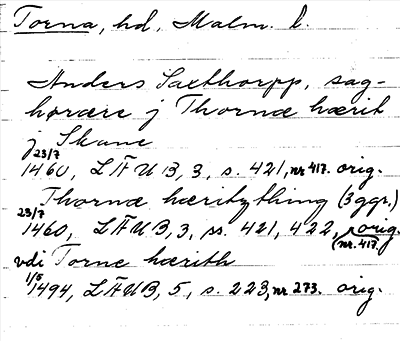 Torna, hd, Malm. l.
Anders Saxthorpp, sag-
hørære j Thornæ hærit
j Skane
23/7
1460, LÄUB, 3, s. 421, nr 417. orig.
Thornæ hæritzthing (3 ggr.)
23/7
1460, LÄUB, 3, ss. 421, 422, orig.
(nr. 417.
vdi Torne hærith
1/5
1494, LÄUB, 5, s. 223, nr 273. orig.